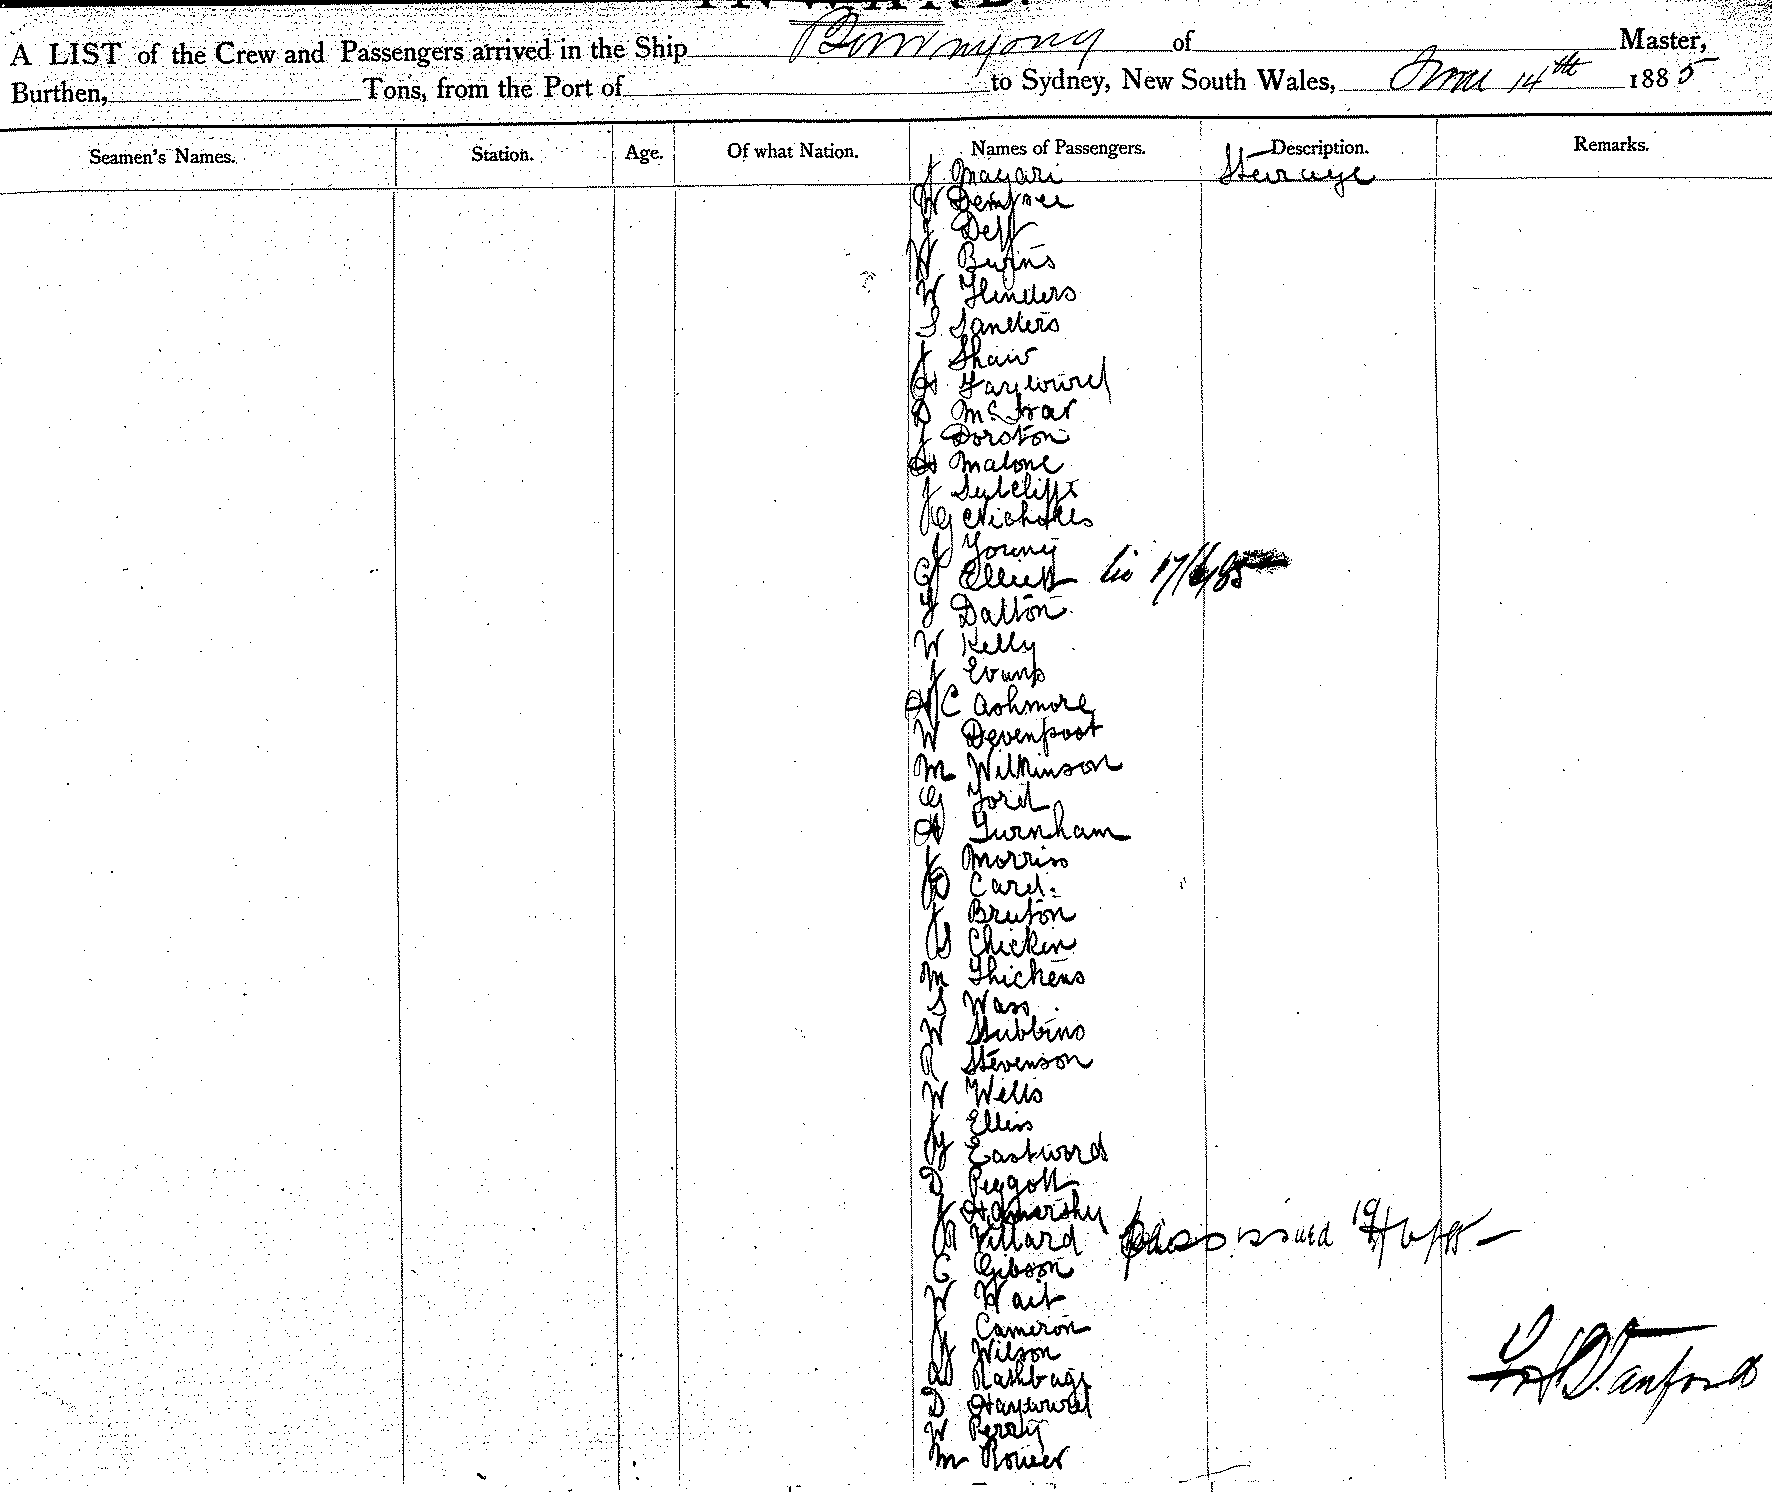 INWARD.
A LIST of the Crew and Passengers arrived in the Ship Buninyong of Master,
Burthen, Tons, from the Port of to Sydney, New South Wales, June 14th 1885
Seamen's Names. Station. Age. Of what Nation. Names of Passengers. Description. Remarks.
J Magari Steerage
W
J Deff
W Burns
W Flinders
S Sanders
J Shaw
H
D
J Dorston
H Malone
J Sutcliffe
G Nicholls
J Young
G Elliott 17/6/85
J Dalton
W Kelly
J Evans
H C Ashmore
W Devenport
M Wilkinson
G Ford
H Turnham
J Morriss
D Card.
J Bruton
S Chicken
M Thickens
S Wass
W Stubbins
R Stevenson
W Wells
J Ellis
J Eastword
D Peggott
J
A Villard pass issued
C Gibson
W Wait
J Cameron
J Wilson
Rathbage
D Hayward
W Perry
M